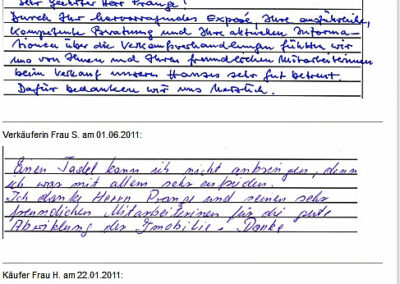 Sehr geehrter Herr Prange!
Durch Ihr hervorragendes Exposé, Ihre ausführliche,
kompetente Beratung und Ihre aktuellen Informa-
tionen über die Verkaufsverhandlungen fühlten wir
uns von Ihnen und Ihren freundlichen Mitarbeiterinnen
beim Verkauf unseres Hauses sehr gut betreut.
Dafür bedanken wir uns herzlich.
Verkäuferin Frau S. am 01.06.2011:
Einen Tadel kann ich nicht anbringen, denn
ich war mit allem sehr zufrieden.
Ich danke Herrn Prange und seinen sehr
freundlichen Mitarbeiterinen für die gute
Abwicklung der Imobilie. Danke
Käufer Frau H. am 22.01.2011: